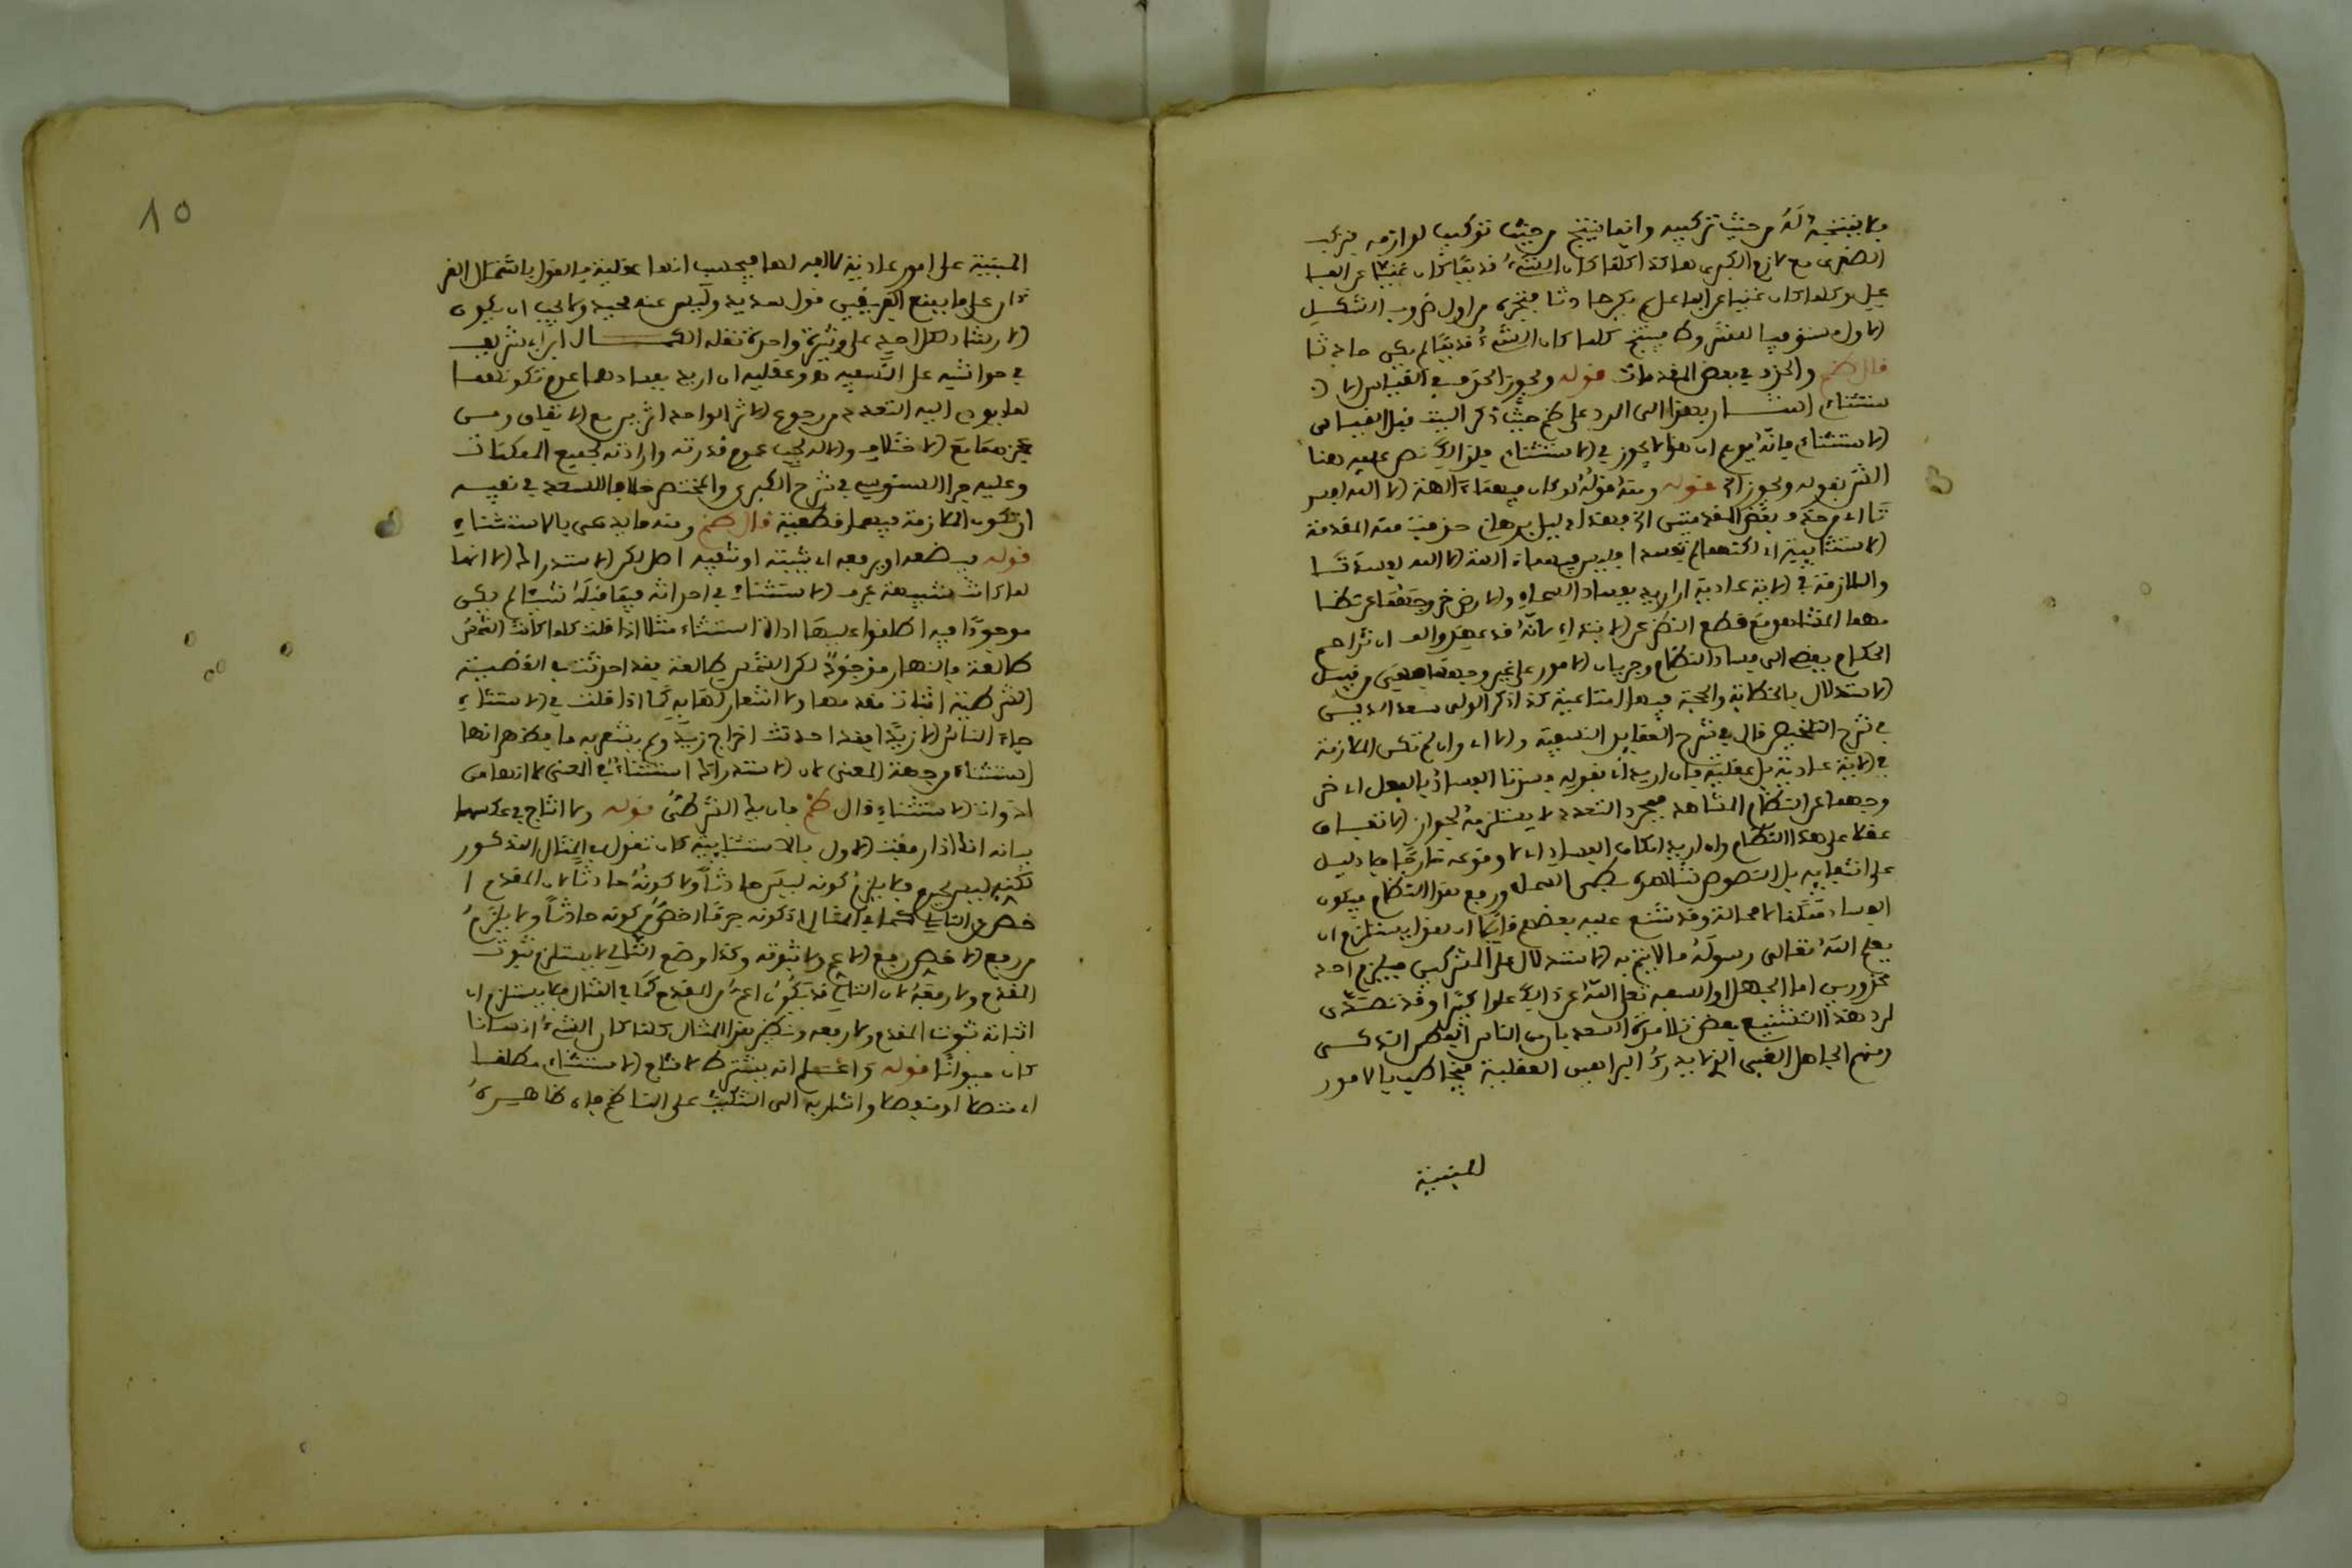 فلا ينتجه له من حيث تركيبه وانما ينتج من حيث تركيب لوازمه بتركب
الصغرى مع لازم الكبرى هاكذا كلما كان الشيء قديما كان غنيا عن الفا
عل وكلما كان غنيا عن الفاعل لم يكن حادثا من اول ضروب الشكل
الاول فينتج كلما كان الشيء قديما لم يكن حادثا
قال ظم والحذف في بعض المقدمات قوله ويجوز الحذف في القياس الا
ستثناء اشار بهذا الى الرد على ظم حيث ذكر البيت قبل القياس
الاستثناء فانه يوهم ان هذا لا يجوز في الاستثناء فلذالك نص عليه هنا
الش بقوله ويجوز الخ قوله ومنه قوله لو كان فيهما ءالهة الا الله لفسد
تا اي من حذف بعض المقدمتين الخ فهذا دليل برهان حذفت منه المقدمة
الاستثنائية اي لكنهما لم تفسدا فليس فيهما ءالهة الا الله لفسدتا
والملازمة في الاية عادية ان اريد بفساد السماء والارض خروجهما عن نظا
مهما المشاهد مع قطع النظر عن
الحكام يفضي الى فساد النظام وجريان الامور على غير وجهها من قبيل
الاستدلال بالخطابة والحجة فيها اقناعية كذا ذكر المولى سعد الدين
في شرح التلخيص قال في شرح العقايد النسفية والا اي وان لم تكن الملازمة
في الاية عادية بل عقلية فان اريد بقوله فسدتا الفساد بالفعل اي خر
وجهما عن النظام المشاهد فمجرد التعدد لا يستلزمه لجواز الاتفاق
عقلا على هذا النظام وان اريد امكان الفساد اي لا وقوعه خارجا فلا دليل
على انتفايه بل النصوص شاهدة بطي السماء ورفع هذا النظام فيكون
الفساد ممكنا لا محالة وقد شنع عليه بعضهم قايلا ان هذا يستلزم ان
يعلم الله تعالى رسوله ما لا يتم به الاستدلال على المشركين فيلزم احد
محذورين اما الجهل او السفه تعلى الله عن ذالك علوا كبيرا وقد تصدى
لرد هذا التشنيع بعض تلامذة السعد بان من الناس الفطن الذكي
ومنهم الجاهل الغبي الذي لا يدرك البراهين العقلية فيخاطب بالامور
المبنية
10
المبنية على امور عادية لالفه لها فيحسب انها عقلية فالقول باشتمال القر
ءان على ما ينفع الفريقين قول سديد وليس عنه محيد ولا يجب ان يكون
الارشاد لكل احد على وتيرة واحدة نقله الكمال ابن ابي شريف
في حواشيه على النسفية هو وعقلية ان اريد بفسادهما عدم تكونهما
لما يودي اليه التعدد من رجوع الاثر الواحد اثرين مع الاتفاق ومن
عجزهما مع الاختلاف والاله يجب عموم قدرته وارادته لجميع الممكنات
وعليه جرا السنوسي في شرح الكبرى والمختصر خلافا للسعد في نفيه
ان تكون الملازمة فيهما قطعية قال ظم ومنه ما يدعى بالاستثناءِ
قوله بوضعه او برفعه اي يثبته او ينفيه اصل لكن الاستدراك الا انها
لما كانت شبيهة بحرف الاستثناء في احداثه فيما قبله شيئا لم يكن
موجودا فيه اطلقوا عليها اداة استثناء مثلا اذا قلت كلما كانت الشمس
طالعة فالنهار موجود لكن الشمس طالعة فقد احدثت في القضية
الشرطية اثبات مقدمها ولا اشعار لها به كما اذا قلت في الاستثناء
جاء الناس الا زيدا فقد احدثت اخراج زيد ولم يشعر به ما قبل فظهر انها
استثناء من جهة المعنى لان الاستدراك استثناء في المعنى لا انها من
ادوات الاستثناء قال ظم فان يك الشرطي قوله ولا انتاج في عكسهما
بيانه انك اذا رفعت الاول بالاستثنائية كان تقول في المثال المذكور
لكنه ليس بجرم فلا يلزم كونه ليس حادثا ولا كونه حادثا لان المقدم ا
خص من التالي كما في المثال اذ كونه جرما اخص من كونه حادثا ولا يلزم
من رفع الاخص رفع الاعم ولا ثبوته وكذا وضع التالي لا يستلزم ثبوت
المقدم ولا رفعه لان التالي قد يكون اعم من المقدم كما في المثال فلا يستلزم ا
اثباته ثبوت المقدم ولا رفعه ونظير هذا المثال كلما كان الشيء انسانا
كان حيوانا قوله واعلم انه يشترط لانتاج الاستثناء مطلقا
اي متصلا او منفصلا واشار به الى التنكيت على الناظم فان ظاهره